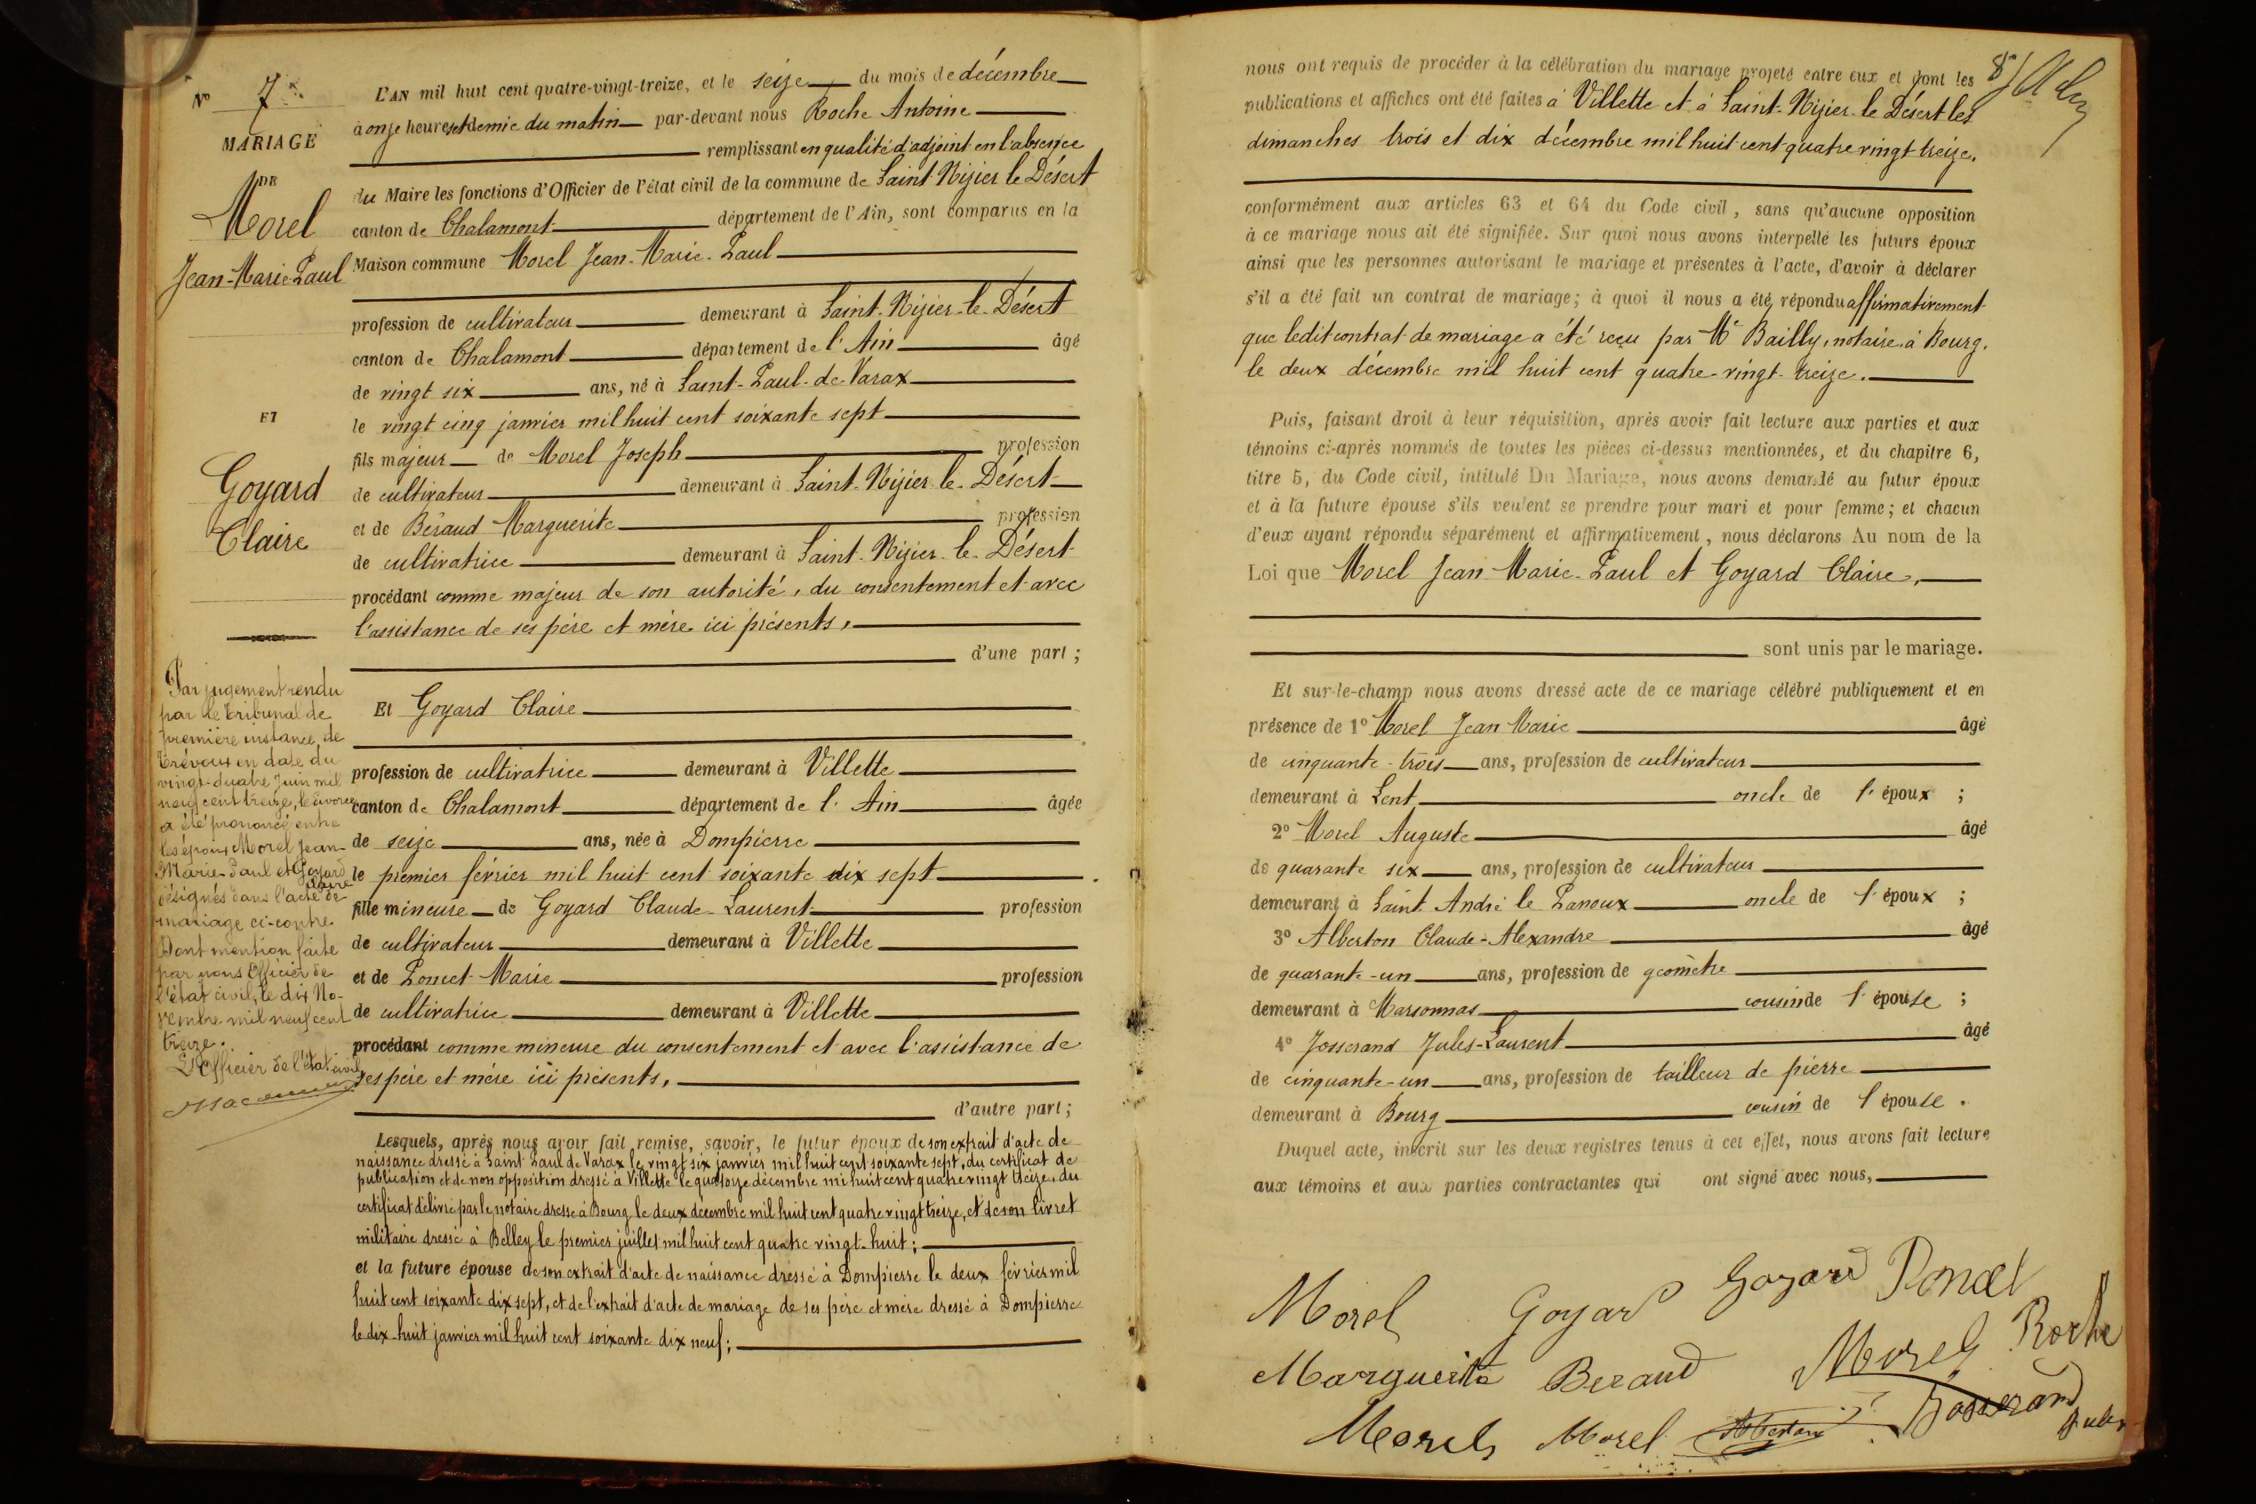 N° 7
MARIAGE
DE
Morel
Jean-Marie-Paul
ET
Goyard
Claire
Par jugement rendu
par le tribunal de
première instance de
Trévoux en date du
vingt-quatre Juin mil
neuf cent treize, le divorce
a été prononcé entre
les époux Morel Jean-
Marie-Paul et Goyard
Claire
désignés dans l'acte de
mariage ci-contre.
Dont mention faite
par nous Officier de
l'état civil, le dix No-
vembre mil neuf cent
treize.
L'Officier de l'état civil
L'AN mil huit cent quatre-vingt-treize, et le seize du mois de décembre
à onze heures et demie du matin par-devant nous Roche Antoine
remplissant en qualité d'adjoint en l'absence
du Maire les fonctions d'Officier de l'état civil de la commune de Saint Nizier le Désert
canton de Chalamont département de l'Ain, sont comparus en la
Maison commune Morel Jean-Marie-Paul
profession de cultivateur demeurant à Saint-Nizier-le-Désert
canton de Chalamont département de l'Ain âgé
de vingt six ans, né à Saint-Paul-de-Varax
le vingt cinq janvier mil huit cent soixante sept
fils majeur de Morel Joseph profession
de cultivateur demeurant à Saint-Nizier-le-Désert
et de Béraud Marguerite profession
de cultivatrice demeurant à Saint-Nizier-le-Désert
procédant comme majeur de son autorité, du consentement et avec
l'assistance de ses père et mère ici présents,
d'une part ;
Et Goyard Claire
profession de cultivatrice demeurant à Villette
canton de Chalamont département de l'Ain âgée
de seize ans, née à Dompierre
le premier février mil huit cent soixante dix sept
fille mineure de Goyard Claude-Laurent profession
de cultivateur demeurant à Villette
et de Poncet Marie profession
de cultivatrice demeurant à Villette
procédant comme mineure du consentement et avec l'assistance de
ses père et mère ici présents,
d'autre part ;
Lesquels, après nous avoir fait remise, savoir, le futur époux de son extrait d'acte de
naissance dressé à Saint Paul de Varax le vingt six janvier mil huit cent soixante sept, du certificat de
publication et de non opposition dressé à Villette le quatorze décembre mil huit cent quatre vingt treize, du
certificat délivré par le notaire dressé à Bourg le deux décembre mil huit cent quatre vingt treize, et de son livret
militaire dressé à Belley le premier juillet mil huit cent quatre vingt-huit ;
et la future épouse de son extrait d'acte de naissance dressé à Dompierre le deux février mil
huit cent soixante dix sept, et de l'extrait d'acte de mariage de ses père et mère dressé à Dompierre
le dix-huit janvier mil huit cent soixante dix neuf ;
nous ont requis de procéder à la célébration du mariage projeté entre eux et dont les
publications et affiches ont été faites à Villette et à Saint-Nizier-le Désert les
dimanches trois et dix décembre mil huit cent quatre vingt treize.
conformément aux articles 63 et 64 du Code civil, sans qu'aucune opposition
à ce mariage nous ait été signifiée. Sur quoi nous avons interpellé les futurs époux
ainsi que les personnes autorisant le mariage et présentes à l'acte, d'avoir à déclarer
s'il a été fait un contrat de mariage ; à quoi il nous a été répondu affirmativement
que ledit contrat de mariage a été reçu par Me Bailly, notaire à Bourg,
le deux décembre mil huit cent quatre-vingt-treize.
Puis, faisant droit à leur réquisition, après avoir fait lecture aux parties et aux
témoins ci-après nommés de toutes les pièces ci-dessus mentionnées, et du chapitre 6,
titre 5, du Code civil, intitulé Du Mariage, nous avons demandé au futur époux
et à la future épouse s'ils veulent se prendre pour mari et pour femme ; et chacun
d'eux ayant répondu séparément et affirmativement, nous déclarons Au nom de la
Loi que Morel Jean-Marie-Paul et Goyard Claire,
sont unis par le mariage.
Et sur-le-champ nous avons dressé acte de ce mariage célébré publiquement et en
présence de 1° Morel Jean Marie âgé
de cinquante-trois ans, profession de cultivateur
demeurant à Lent oncle de l'époux ;
2° Morel Auguste âgé
de quarante six ans, profession de cultivateur
demeurant à Saint André le Panoux oncle de l'époux ;
3° Alberton Claude-Alexandre âgé
de quarante-un ans, profession de géomètre
demeurant à Marsonnas cousin de l'épouse ;
4° Josserand Jules-Laurent âgé
de cinquante-un ans, profession de tailleur de pierre
demeurant à Bourg cousin de l'épouse .
Duquel acte, inscrit sur les deux registres tenus à cet effet, nous avons fait lecture
aux témoins et aux parties contractantes qui ont signé avec nous,
Morel Goyard Goyard Poncet
Marguerite Beraud Morel Roche
Morel Morel Alberton Josserand
Jules